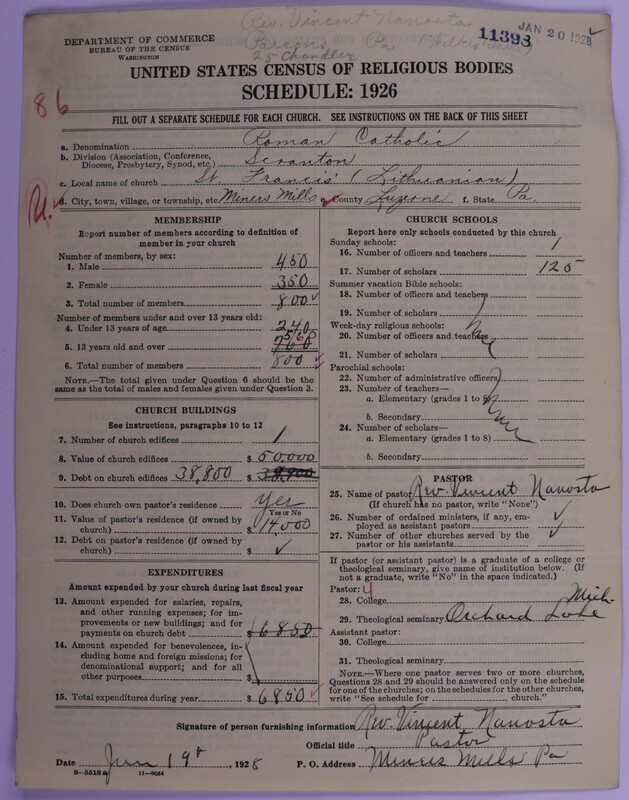 Rev. Vincent Nanosta
Parsons Pa (Wilkes Barre)
25 Chandler
11398
JAN 20 1928
DEPARTMENT OF COMMERCE
BUREAU OF THE CENSUS
WASHINGTON
UNITED STATES CENSUS OF RELIGIOUS BODIES
SCHEDULE: 1926
86
FILL OUT A SEPARATE SCHEDULE FOR EACH CHURCH. SEE INSTRUCTIONS ON THE BACK OF THIS SHEET
a. Denomination Roman Catholic
b. Division (Association, Conference, Diocese, Presbytery, Synod, etc.) Scranton
c. Local name of church St. Francis' (Lithuanian)
U. d. City, town, village, or township, etc. Miners Mills e. County Luzerne f. State Pa.
MEMBERSHIP
Report number of members according to definition of
member in your church
Number of members, by sex:
1. Male 450
2. Female 350
3. Total number of members 800
Number of members under and over 13 years old:
4. Under 13 years of age 240
5. 13 years old and over 560
6. Total number of members 800
NOTE.—The total given under Question 6 should be
same as the total of males and females given under Question 3.
CHURCH BUILDINGS
See instructions, paragraphs 10 to 12
7. Number of church edifices 1
8. Value of church edifices $ 50,000
9. Debt on church edifices 38,800 $ 38,800
10. Does church own pastor's residence Yes
Yes or No
11. Value of pastor's residence (if owned by
church) $ 14,000
12. Debt on pastor's residence (if owned by
church) $ ✓
EXPENDITURES
Amount expended by your church during last fiscal year
13. Amount expended for salaries, repairs,
and other running expenses; for im-
provements or new buildings; and for
payments on church debt $ 6850
14. Amount expended for benevolences, in-
cluding home and foreign missions; for
denominational support; and for all
other purposes $
15. Total expenditures during year $ 6850
CHURCH SCHOOLS
Report here only schools conducted by this church
Sunday schools:
16. Number of officers and teachers 1
17. Number of scholars 125
Summer vacation Bible schools:
18. Number of officers and teachers
19. Number of scholars
Week-day religious schools:
20. Number of officers and teachers
21. Number of scholars
Parochial schools:
22. Number of administrative officers
23. Number of teachers—
a. Elementary (grades 1 to 8)
b. Secondary
24. Number of scholars—
a. Elementary (grades 1 to 8)
b. Secondary
PASTOR
25. Name of pastor Rev. Vincent Nanosta
(If church has no pastor, write "None")
26. Number of ordained ministers, if any, em-
ployed as assistant pastors ✓
27. Number of other churches served by the
pastor or his assistants ✓
If pastor (or assistant pastor) is a graduate of a college or
theological seminary, give name of institution below. (If
not a graduate, write "No" in the space indicated.)
Pastor: 4
28. College Mich.
29. Theological seminary Orchard Lake
Assistant pastor:
30. College
31. Theological seminary
NOTE.—Where one pastor serves two or more churches,
Questions 28 and 29 should be answered only on the schedule
for one of the churches; on the schedules for the other churches,
write "See schedule for church."
Signature of person furnishing information Rev. Vincent Nanosta
Official title Pastor
Date Jan 19th, 1928 P. O. Address Miners Mills Pa
8—5518 a 11—9084